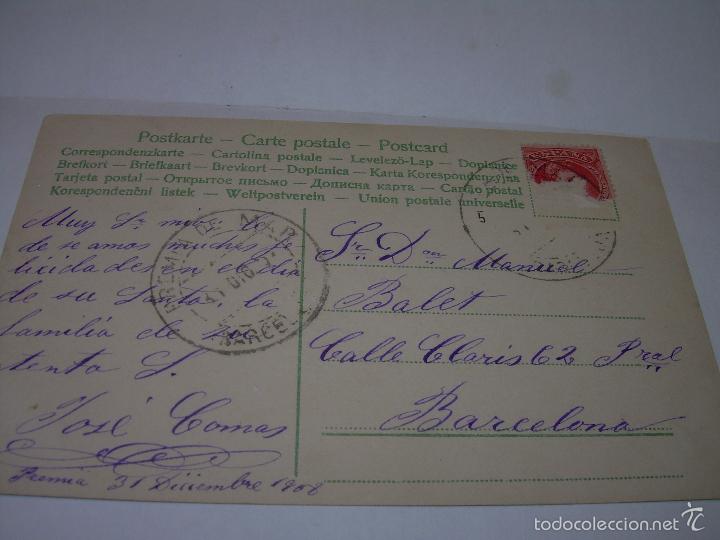 Postkarte – Carte postale – Postcard
Correspondenzkarte – Cartolina postale – Levelező-Lap – Dopisnice
Brefkort – Briefkaart – Brevkort – Dopisnica – Karta Korespondenzyjna
Tarjeta postal – Открытое письмо – Дописна карта – Cartão postal
Korespondenční listek – Weltpostverein – Union postale universelle
ESPAÑA
5
Muy Sr. mio: Le
de se amos muchas fe
licidades en el dia
de su Santo, la
familia de
tento S.
José Comas
Premia 31 Diciembre 1908
DE MAR
BARCEL
Sr. Dn. Manuel
Balet
Calle Claris 62 Pral
Barcelona
todocoleccion.net